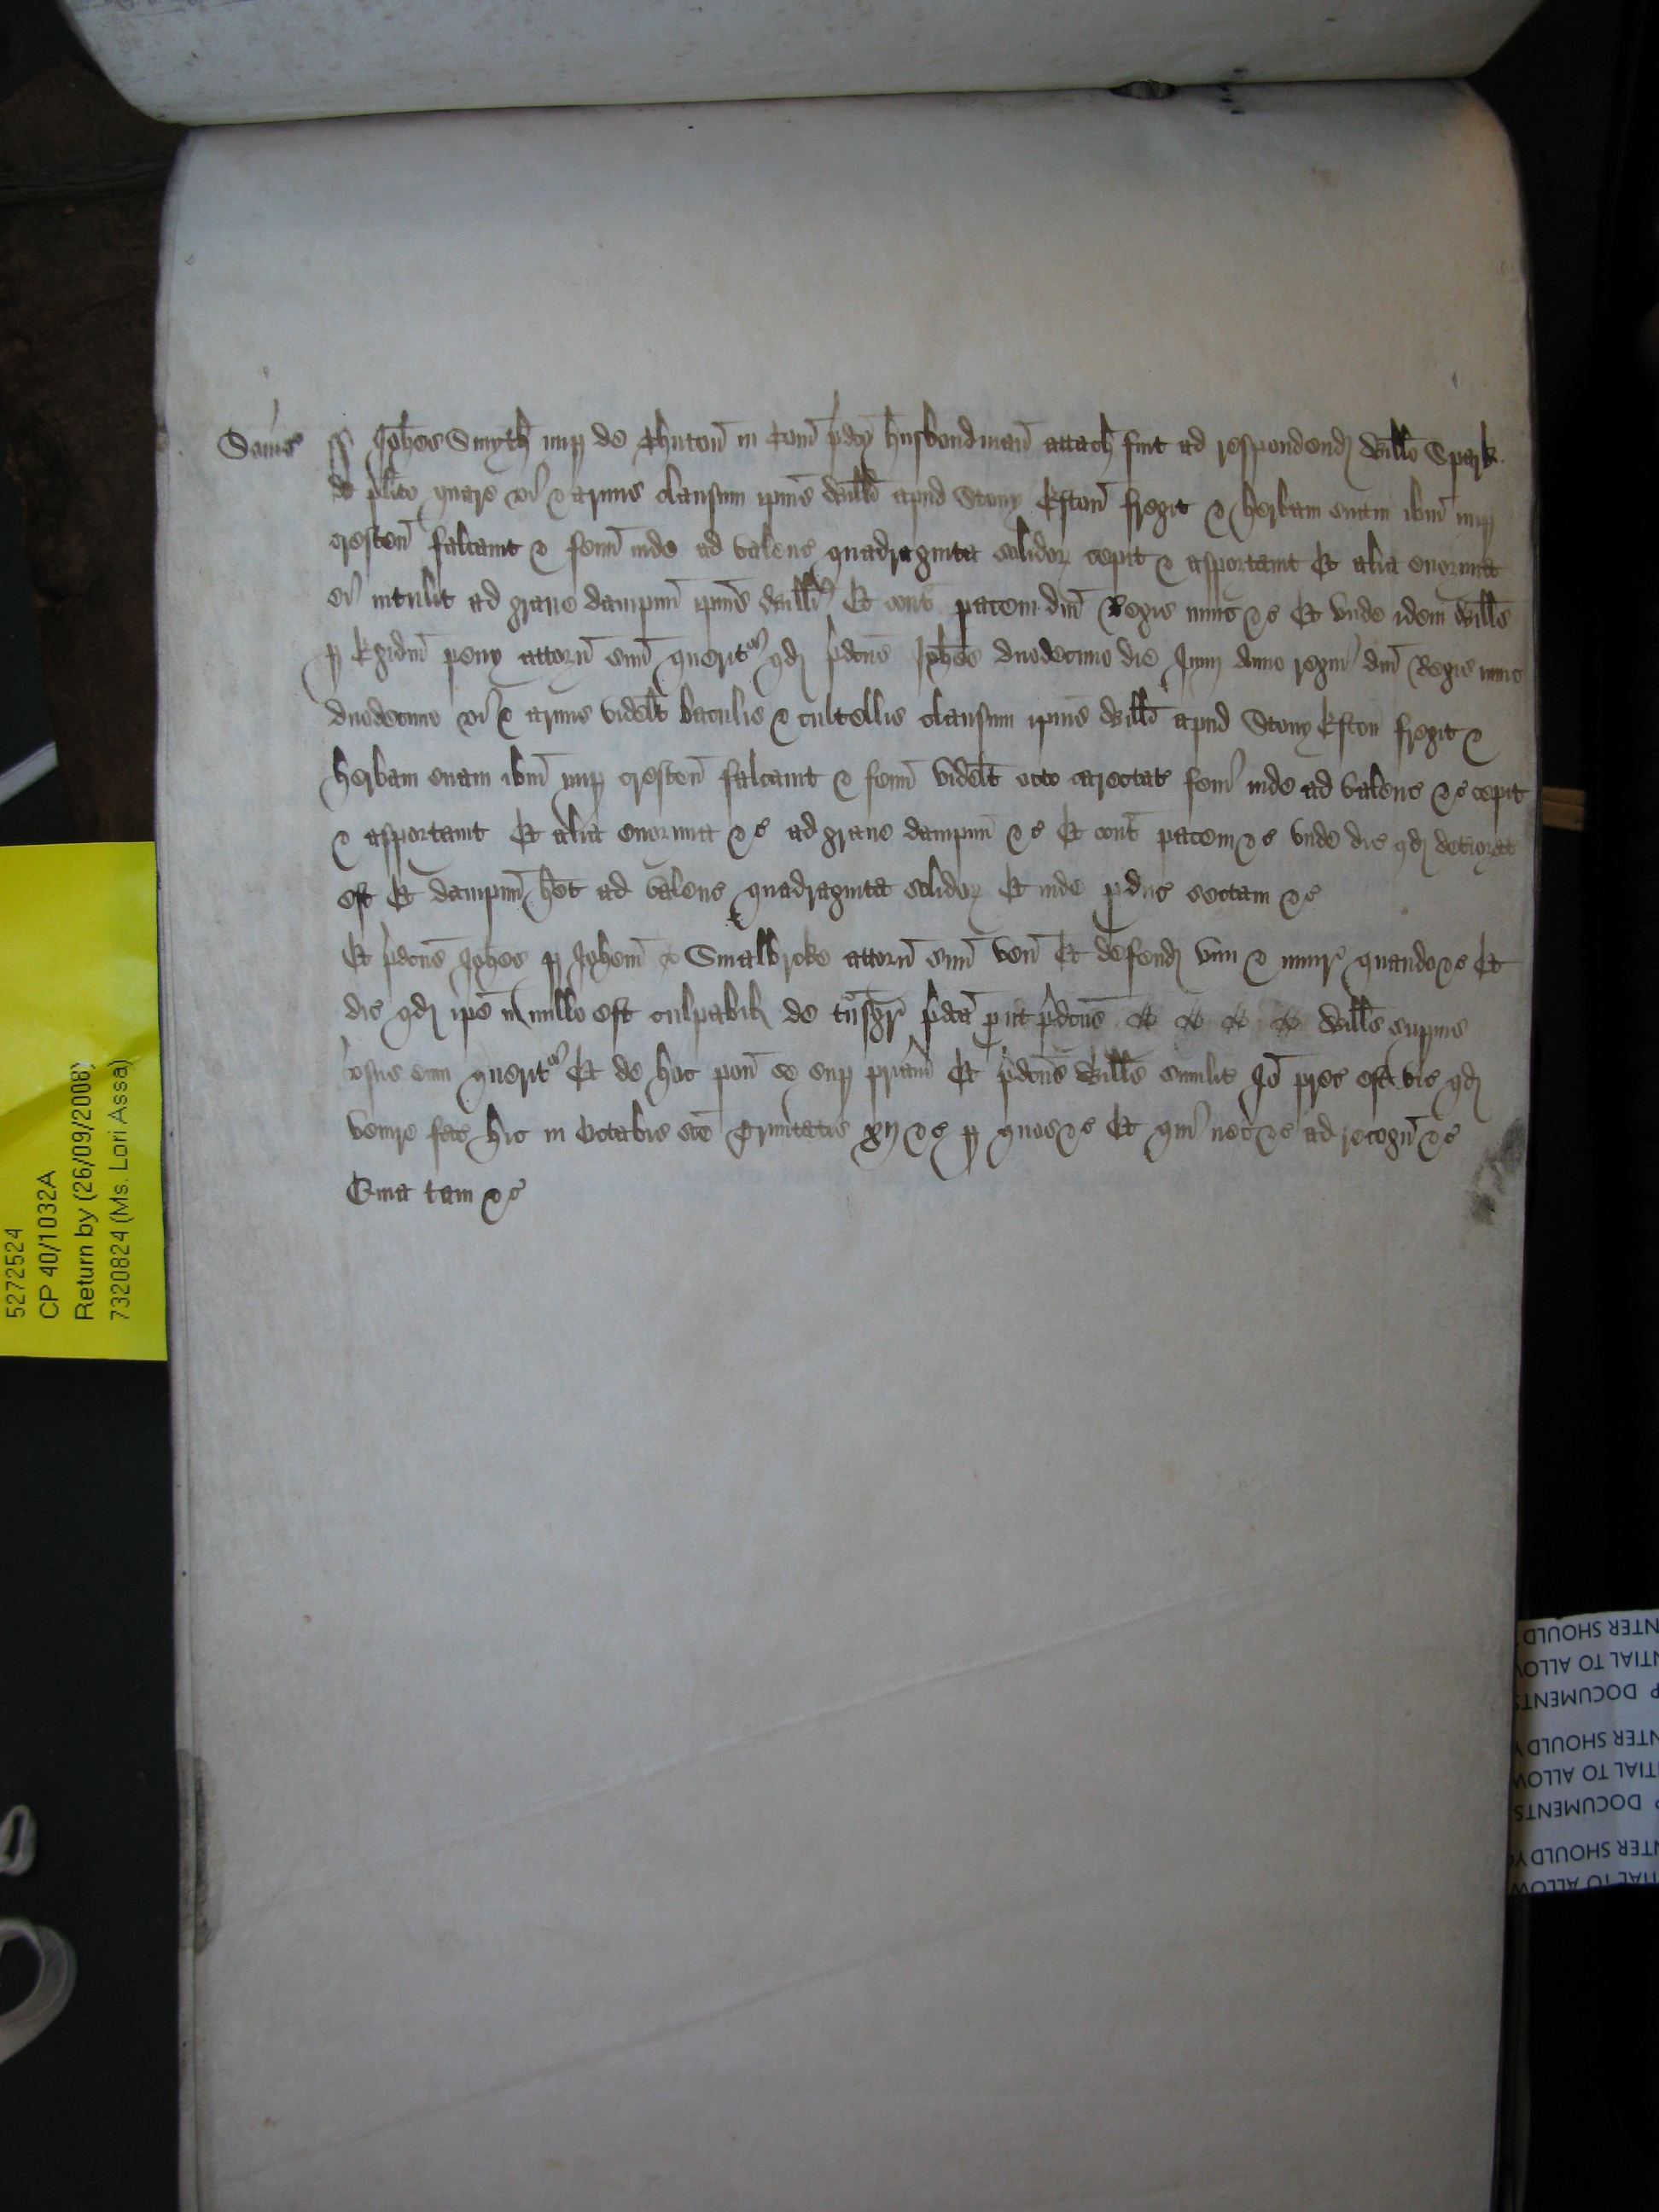 Som̃s ss Joh̃es Smyth nup de Chuton̄ in Com̄ p̄dc̄o husbondman̄ attach fuit ad respondend Willo Spark
de pl̄ito quare vi & armis clausum ipius Willi apud Stony Eston̄ fregit & herbam suam ibm̄ nup
cresten̄ falcauit & fenū inde ad valenc quadraginta solidoꝝ cepit & asportauit Et alia enormia
ei intulit ad graue dampnū ipius Willi Et cont̄ pacem dn̄i Regis nunc &c Et vnde idem Will̄s
p Egidiū peny attorn̄ suū querit qd p̄dcūs Joh̃es duodecimo die Junij Anno regni dn̄i Regis nunc
duodecimo vi & armis videlt̄ baculis & cultellis clausum ipius Willi apud Stony Eston fregit &
herbam suam ibm̄ nup cresten̄ falcauit & fenū videlt̄ octo carectat feni inde ad valenc &c cepit
& asportauit Et alia enormia &c ad graue dampnū &c Et cont̄ pacem &c vnde dic qd deteriorat
est Et dampnū h̄et ad valenc quadraginta solidoꝝ Et inde pduc sectam &c
Et p̄dcūs Joh̃es p Joh̃em Smalbroke attorn̄ suū ven̄ Et defend vim & iniur quando &c Et
dic qd ip̄e in nullo est culpabil de tn̄sgr p̄dcā put p̄dcūs Will̄s supius
vsus eum querit Et de hoc pon̄ se sup p̄riam Et p̄dcūs Will̄s similit Iō prec est vic qd
venire fac hic in Octabis scē Trinitatis xij &c p quos &c Et qui nec &c ad recogn̄ &c
Quia tam &c
5272524
CP 40/1032A
Return by (26/09/2008)
7320824 (Ms. Lori Assa)
NTER SHOULD
NTIAL TO ALLOW
P DOCUMENTS
NTER SHOULD Y
NTIAL TO ALLOW
P DOCUMENTS
NTER SHOULD YO
TIAL TO ALLOW